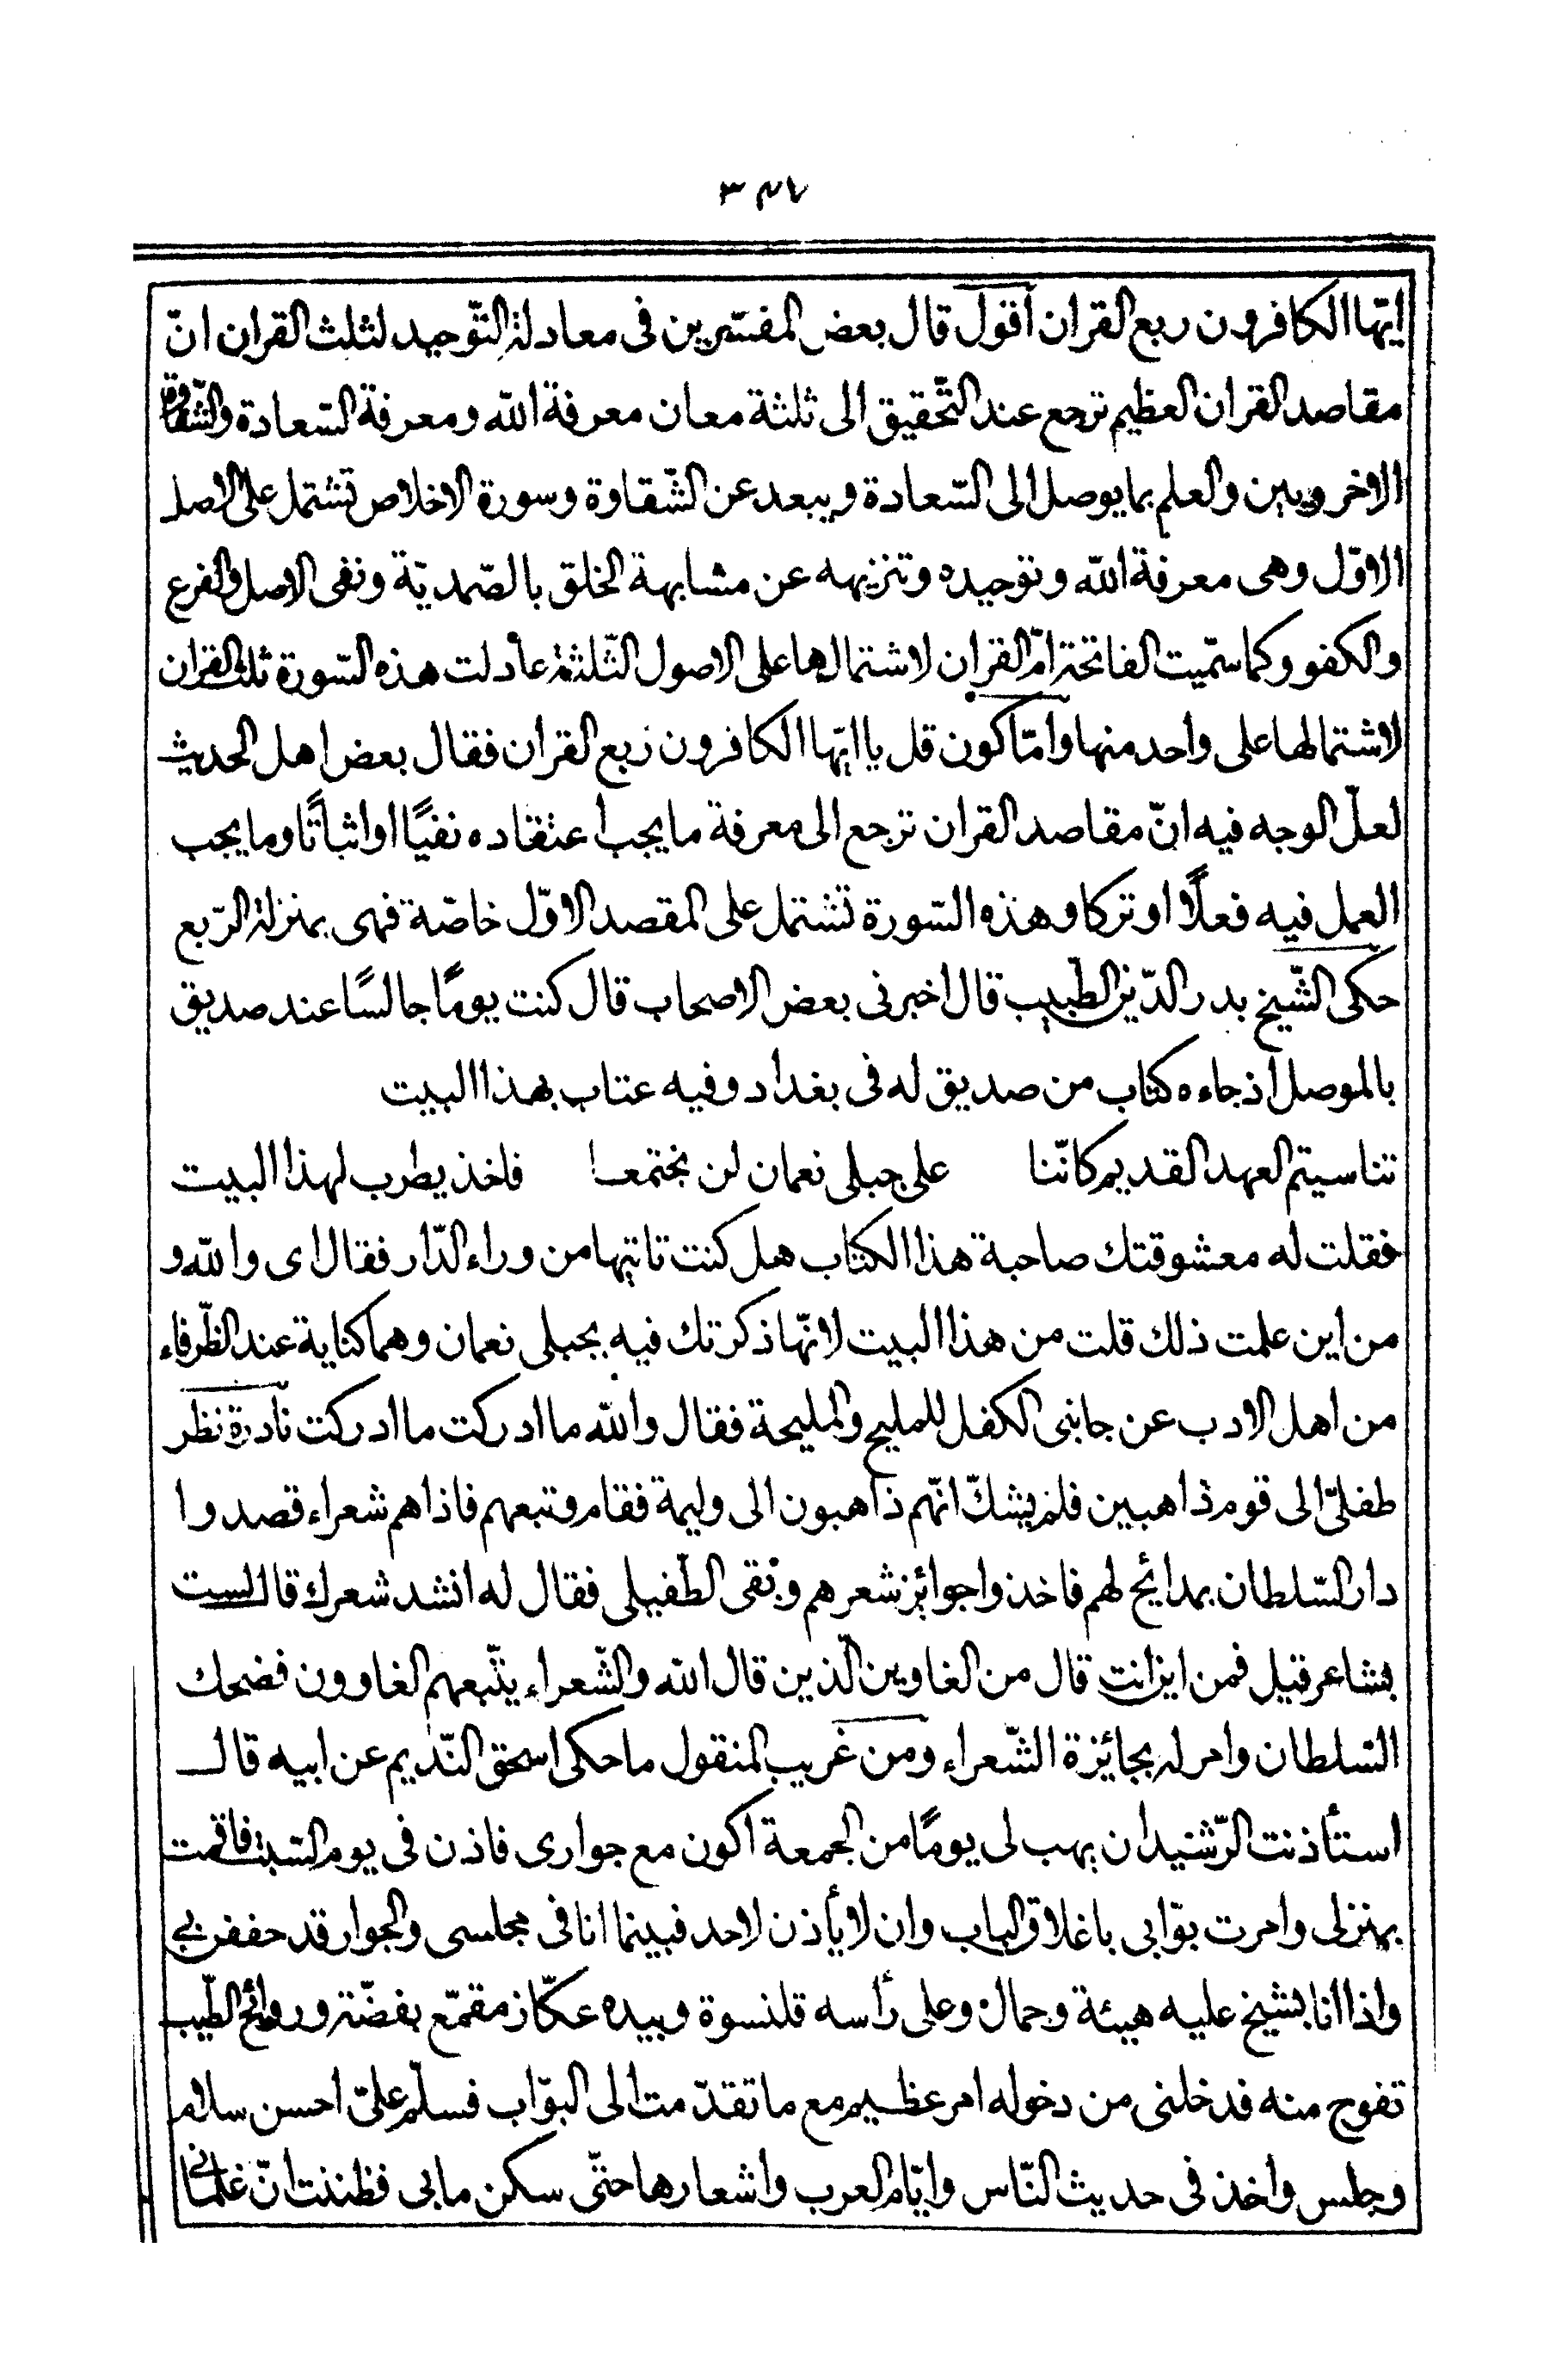 ايّها الكافرون ربع القران اقول قال بعض المفسّرين فى معادلة التّوحيد لثلث القران انّ
مقاصد القران العظيم ترجع عند التّحقيق الى ثلثة معان معرفة الله ومعرفة السّعادة والشّقاوة
الاخرويين والعلم بما يوصل الى السّعادة ويبعد عن الشّقاوة وسورة الاخلاص تشتمل على الاصل
الاوّل وهى معرفة الله وتوحيده وتنزيهه عن مشابهة الخلق بالصّمديّة ونفى الاصل والفرع
والكفو وكما سمّيت الفاتحة امّ القران لاشتمالها على الاصول الثّلثة عادلت هذه السّورة ثلث القران
لاشتمالها على واحد منها وامّا كون قل يا ايّها الكافرون ربع القران فقال بعض اهل الحديث
لعلّ الوجه فيه انّ مقاصد القران ترجع الى معرفة ما يجب اعتقاده نفيًا او اثباتًا وما يجب
العمل فيه فعلًا او تركا وهذه السّورة تشتمل على المقصد الاوّل خاصّة فهى بمنزلة الرّبع
حكى الشّيخ بدر الدّين الطّبيب قال اخبرنى بعض الاصحاب قال كنت يومًا جالسًا عند صديق
بالموصل اذ جاءه كتاب من صديق له فى بغداد وفيه عتاب بهذا البيت
تناسيتم العهد القديم كانّنا على جبلى نعمان لن نجتمعا فاخذ يطرب لهذا البيت
فقلت له معشوقتك صاحبة هذا الكتاب هل كنت تاتيها من وراء الدّار فقال اى والله و
من اين علمت ذلك قلت من هذا البيت لانّها ذكرتك فيه بجبلى نعمان وهما كناية عند الظّرفاء
من اهل الادب عن جانبى الكفل للمليح والمليحة فقال والله ما ادركت ما ادركت نادرة نظر
طفلىّ الى قوم ذاهبين فلم يشكّ انّهم ذاهبون الى وليمة فقام وتبعهم فاذا هم شعراء قصدوا
دار السّلطان بمدائح لهم فاخذوا جوائز شعرهم وبقى الطّفيلى فقال له انشد شعرك قال لست
بشاعر قيل فمن اين انت قال من الغاوين الّذين قال الله والشّعراء يتّبعهم الغاوون فضحك
السّلطان وامر له بجائزة الشّعراء ومن غريب المنقول ما حكى اسحق النّديم عن ابيه قال
استأذنت الرّشيد ان يهب لى يومًا من الجمعة اكون مع جوارى فاذن فى يوم السّبت فاقمت
بمنزلى وامرت بوّابى باغلاق الباب وان لا يأذن لاحد فبينما انا فى مجلسى والجوار قد حففن بى
واذا انا بشيخ عليه هيئة وجمال وعلى رأسه قلنسوة وبيده عكّاز مقمّع بفضّة وروائح الطّيب
تفوح منه فدخلنى من دخوله امر عظيم مع ما تقدّمت الى البوّاب فسلّم علىّ احسن سلام
وجلس واخذ فى حديث النّاس وايّام العرب واشعارها حتّى سكن مابى فظننت انّ غلمانى